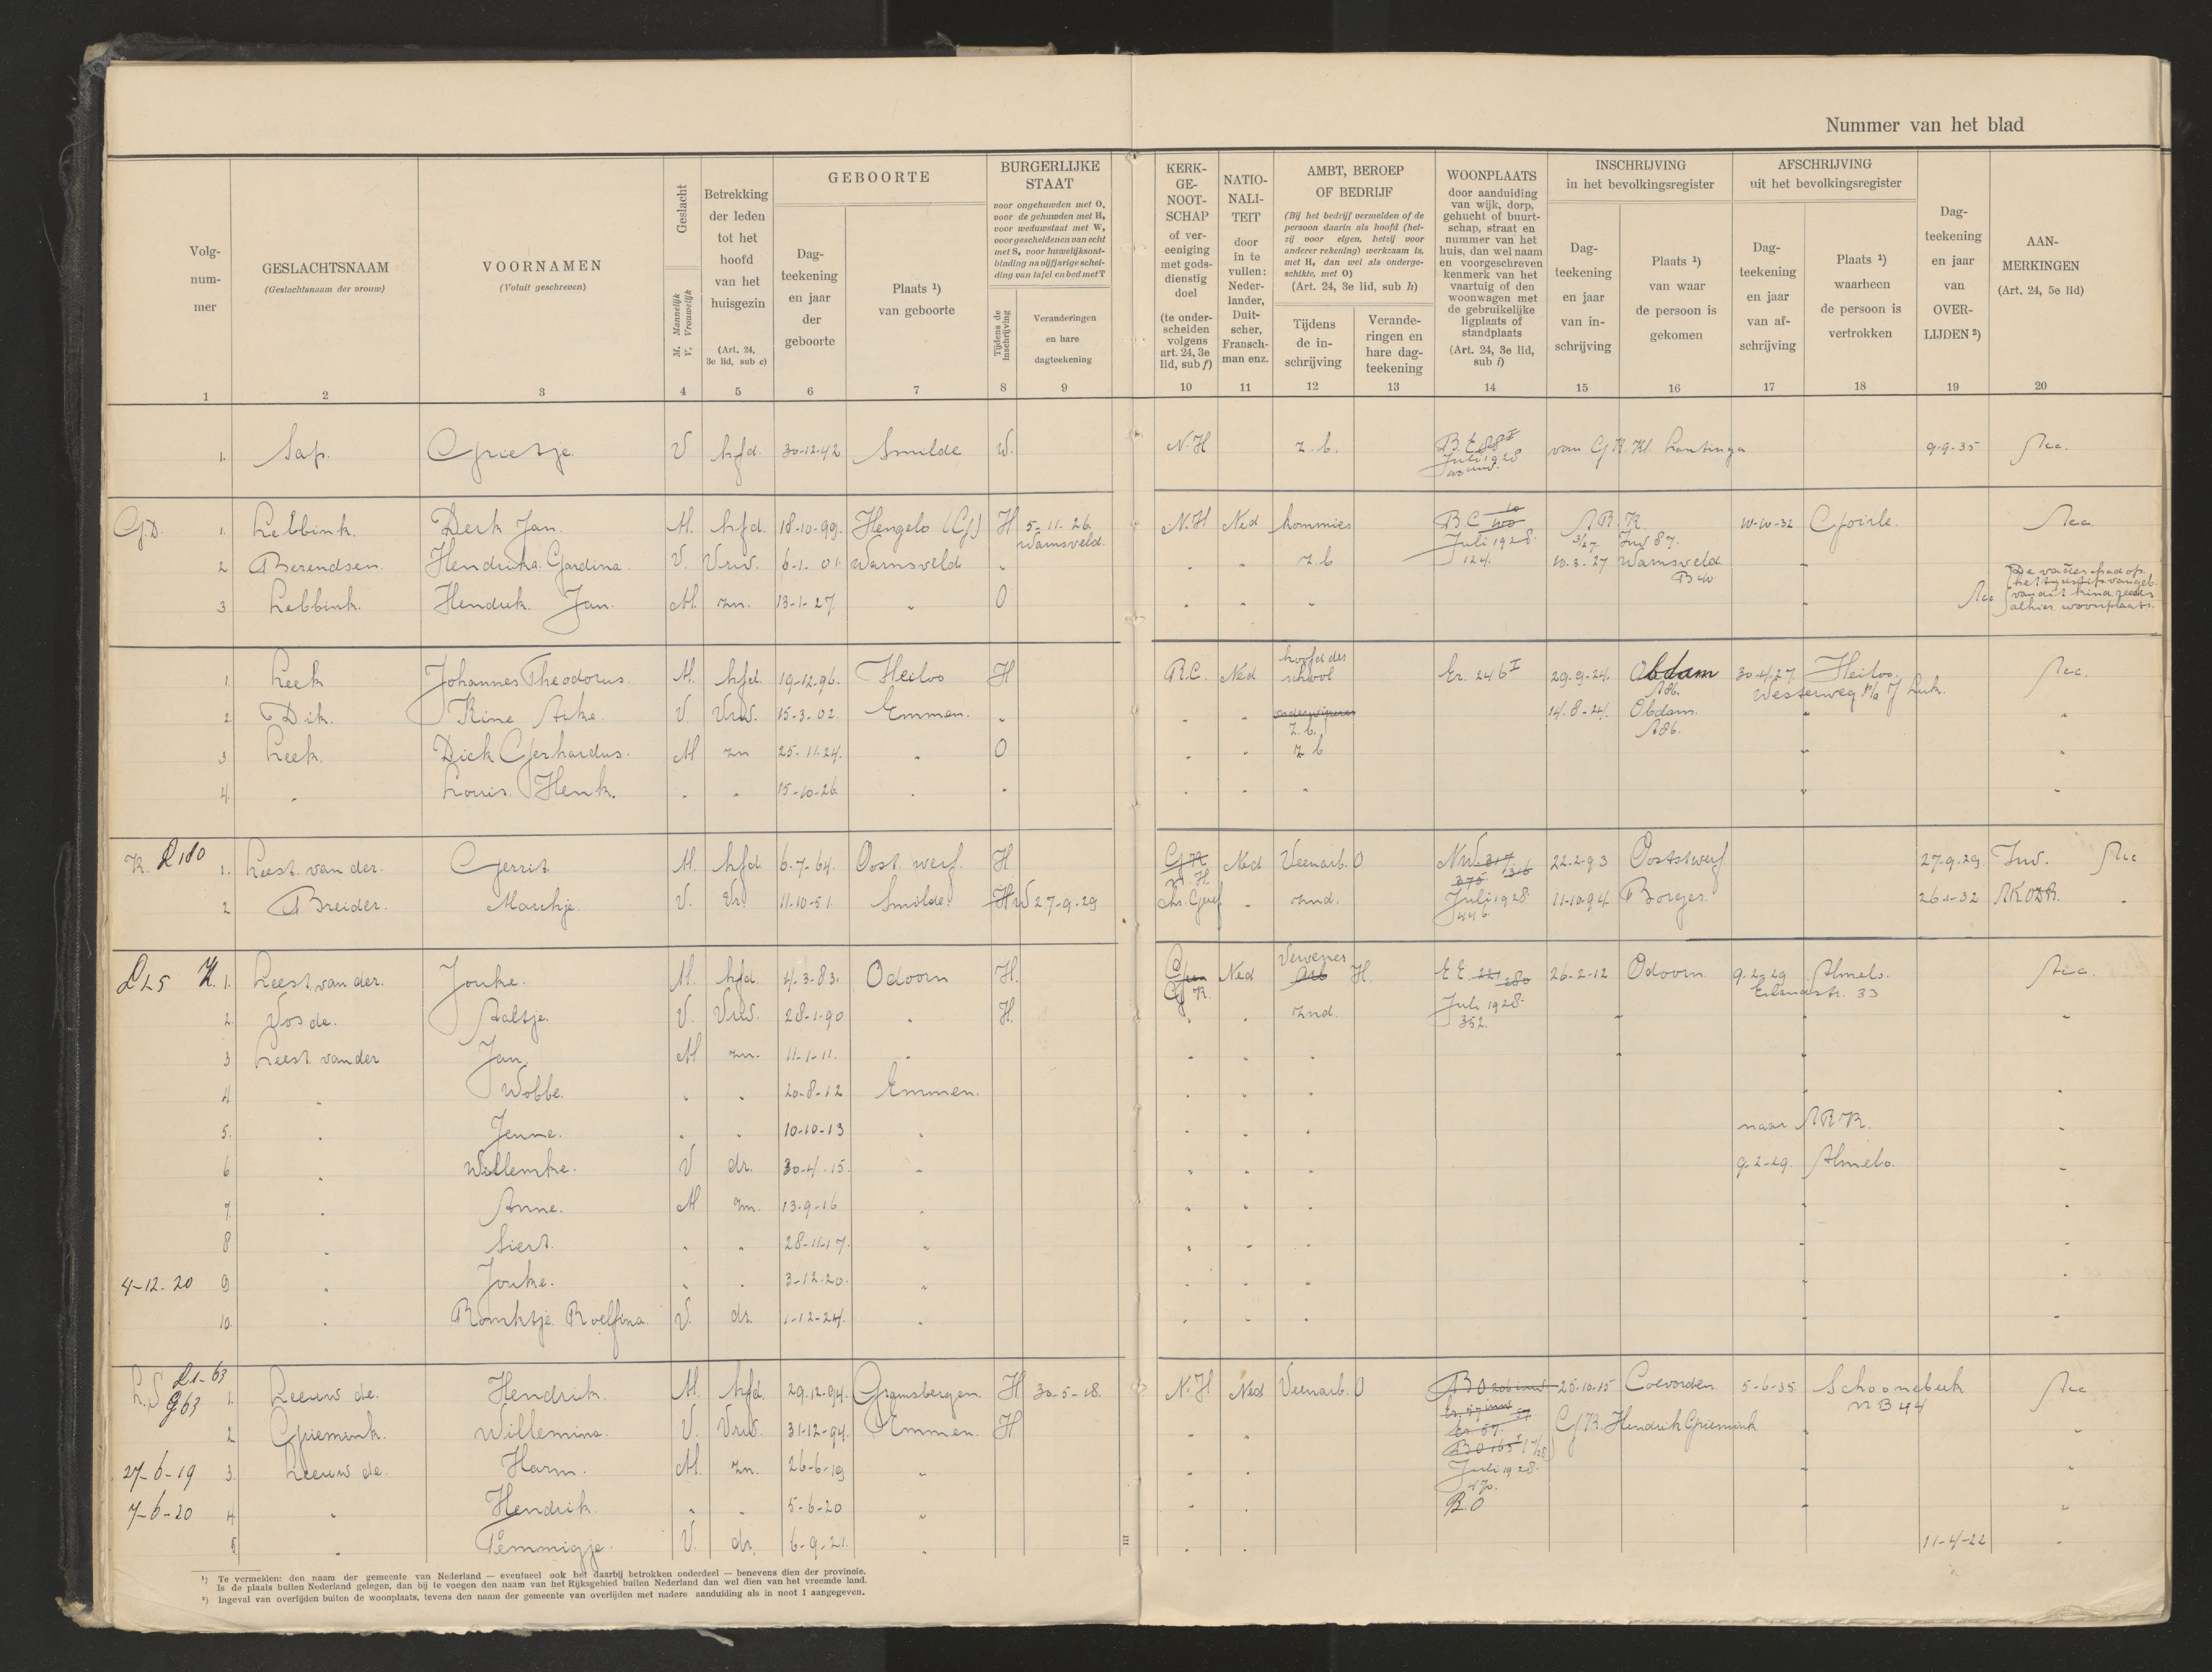 Nummer van het blad
Volg-
num-
mer
1
GESLACHTSNAAM
(Geslachtsnaam der vrouw)
2
VOORNAMEN
(Voluit geschreven)
3
Geslacht
M. Mannelijk
V. Vrouwelijk
4
Betrekking
der leden
tot het
hoofd
van het
huisgezin
(Art. 24,
3e lid, sub c)
5
GEBOORTE
Dag-
teekening
en jaar
der
geboorte
6
Plaats ¹)
van geboorte
7
BURGERLIJKE
STAAT
voor ongehuwden met O,
voor de gehuwden met H,
voor weduwstaat met W,
voor gescheidenen van echt
met S, voor huwelijksont-
binding na vijfjarige schei-
ding van tafel en bed met T
Tijdens de
inschrijving
8
Veranderingen
en hare
dagteekening
9
KERK-
GE-
NOOT-
SCHAP
of ver-
eeniging
met gods-
dienstig
doel
(te onder-
scheiden
volgens
art. 24, 3e
lid, sub f)
10
NATIO-
NALI-
TEIT
door
in te
vullen:
Neder-
lander,
Duit-
scher,
Fransch-
man enz.
11
AMBT, BEROEP
OF BEDRIJF
(Bij het bedrijf vermelden of de
persoon daarin als hoofd (het-
zij voor eigen, hetzij voor
anderer rekening) werkzaam is,
met H, dan wel als onderge-
schikte, met O)
(Art. 24, 3e lid, sub h)
Tijdens
de in-
schrijving
12
Verande-
ringen en
hare dag-
teekening
13
WOONPLAATS
door aanduiding
van wijk, dorp,
gehucht of buurt-
schap, straat en
nummer van het
huis, dan wel naam
en voorgeschreven
kenmerk van het
vaartuig of den
woonwagen met
de gebruikelijke
ligplaats of
standplaats
(Art. 24, 3e lid,
sub i)
14
INSCHRIJVING
in het bevolkingsregister
Dag-
teekening
en jaar
van in-
schrijving
15
Plaats ¹)
van waar
de persoon is
gekomen
16
AFSCHRIJVING
uit het bevolkingsregister
Dag-
teekening
en jaar
van af-
schrijving
17
Plaats ¹)
waarheen
de persoon is
vertrokken
18
Dag-
teekening
en jaar
van
OVER-
LIJDEN ²)
19
AAN-
MERKINGEN
(Art. 24, 5e lid)
20
1. Sap. Grietje. V hfd. 30-12-42 Smilde W. N.H z.b. B.E 88 I van G.K. Kl. Lantinga 9-9-35 Acc.
Juli 1928
G.D. 1. Lebbink. Derk Jan. M. hfd. 18-10-99. Hengelo (G) H 5-11-26 N.H Ned kommies B C 10-10-32 Goirle. Acc.
Warnsveld. Juli 1928. 3/27 Inv 87.
2 Berendsen. Hendrika Gardina. V. Vrw. 6-1-01. Warnsveld " " " z b 124. 10-3-27 Warnsveld "
B 40
De vader had op
het tijdstip van geb.
3 Lebbink. Hendrik Jan. M. zn. 13-1-27 " O " " " " Acc van dit kind reeds
alhier woonplaats.
1 Leek Johannes Theodorus. M. hfd. 19-12-96. Heiloo H R.C. Ned hoofd der school Er. 246 I 29-9-24. Obdam 30-4-27 Heiloo. Acc.
A86. Westerweg p/a J Luk.
2. Dik. Rine Aike. V. Vrw. 15-3-02. Emmen. " " " onderwijzeres 14-8-24. Obdam. " "
z.b. A86.
3 Leek. Dick Gerhardus. M zn 25-11-24. " O " " z b " "
4. " Louis Henk. " " 15-10-26 " " " " " " "
K. L180 1. Leest van der. Gerrit M. hfd 6-7-64. Oost werf. H G K Ned Veenarb. O NW 317. 22-2-93 Ooststwerf 27-9-29. Inv. Acc
N.H. 375. 316
2 Breider. Marchje. V. Vr. 11-10-51. Smilde. H W 27-9-29 Chr. Geref " znd. Juli 1928 11-10-94 Borger. 26-1-32 AKODR. "
446.
LL5 K. 1. Leest van der. Jouke. M. hfd. 4-3-83. Odoorn H. Ned Vervener H. E E. 221 280 26-2-12 Odoorn 9-2-29 Almelo. Acc.
G K. 33
2 Vos de. Aaltje. V. Vrw. 28-1-90 " H. " " znd. Juli 1928. " " "
352.
3 Leest van der Jan. M zn. 11-1-11. " " " " " "
4 " Wobbe. " " 20-8-12 Emmen. " " " " "
5. " Jenne. " " 10-10-13 " " " " naar ABR. "
6 " Willemke. V dr. 30-4-15. " " " " 9-2-29. Almelo. "
7 " Anne. M zn. 13-9-16 " " " " " "
8 " Siert. " " 28-11-17. " " " " " "
4-12-20 9 " Jouke. " " 3-12-20. " " " " " "
10. " Romktje Roelfina. V. dr. 1-12-24. " " " " " "
L.S L1-63
g63 1. Leeuw de. Hendrik. M. hfd. 29-12-94. Gramsbergen. H 30-5-18. N.H Ned Veenarb. O B O 206 25-10-15 Coevorden 5-6-35 Schoonebeek Acc
N B 44
2 Griemink. Willemina. V. Vrw. 31-12-94. Emmen. H " " Er. 57. G.K. Hendrik Griemink " "
B O 165 I
27-6-19 3. Leeuw de. Harm. M. zn. 26-6-19 " " " Juli 1928. "
470.
7-6-20 4. " Hendrik. " " 5-6-20 " " " B.O " "
5. " Femmigje. V. dr. 6-9-21. " " " 11-4-22 "
III
¹) Te vermelden: den naam der gemeente van Nederland — eventueel ook het daarbij betrokken onderdeel — benevens dien der provincie.
Is de plaats buiten Nederland gelegen, dan bij te voegen den naam van het Rijksgebied buiten Nederland dan wel dien van het vreemde land.
²) Ingeval van overlijden buiten de woonplaats, tevens den naam der gemeente van overlijden met nadere aanduiding als in noot 1 aangegeven.